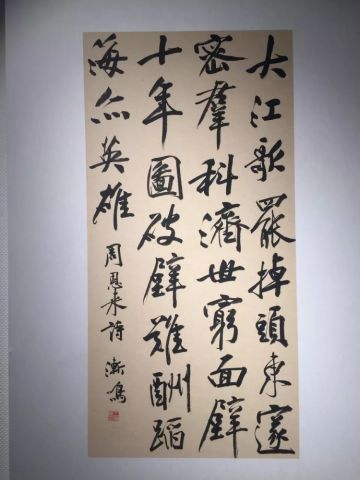 大江歌罷掉頭東邃
密羣科濟世窮面壁
十年圖破壁難酬蹈
海亦英雄
周恩来詩 漸鳴